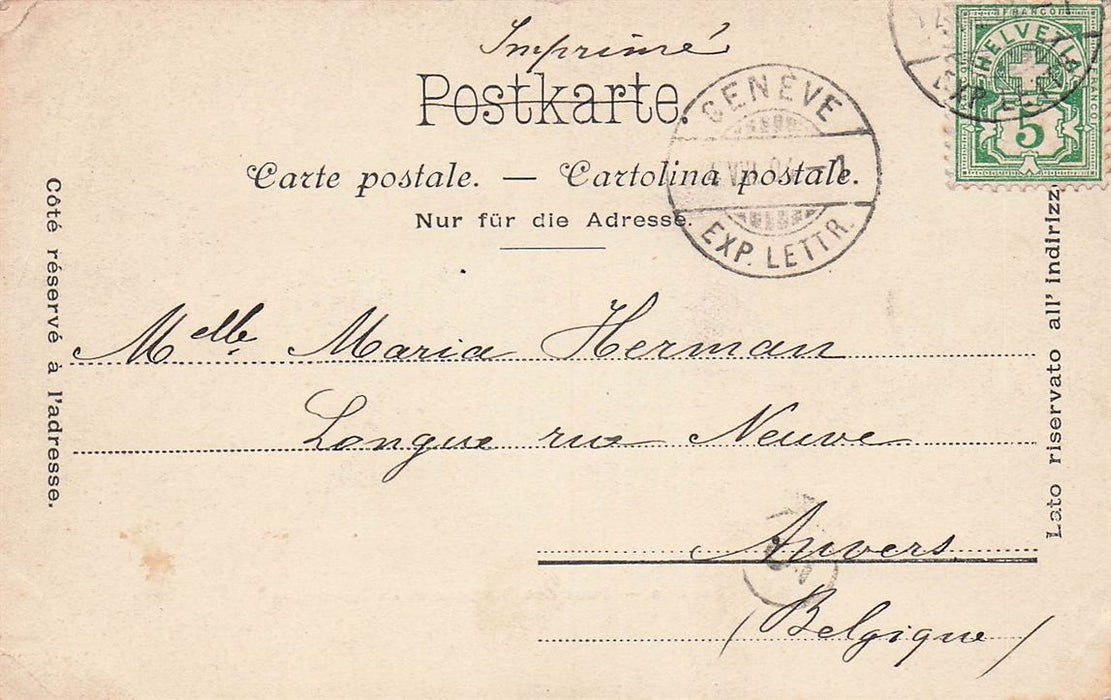 Imprimé
Postkarte.
Carte postale. — Cartolina postale.
Nur für die Adresse.
GENÈVE
EXP. LETTR.
FRANCO
HELVETIA
FRANCO
5
EXP. LETTR.
Côté réservé à l'adresse.
Lato riservato all' indirizz
Melle Maria Herman
Longue rue Neuve
Anvers
(Belgique)